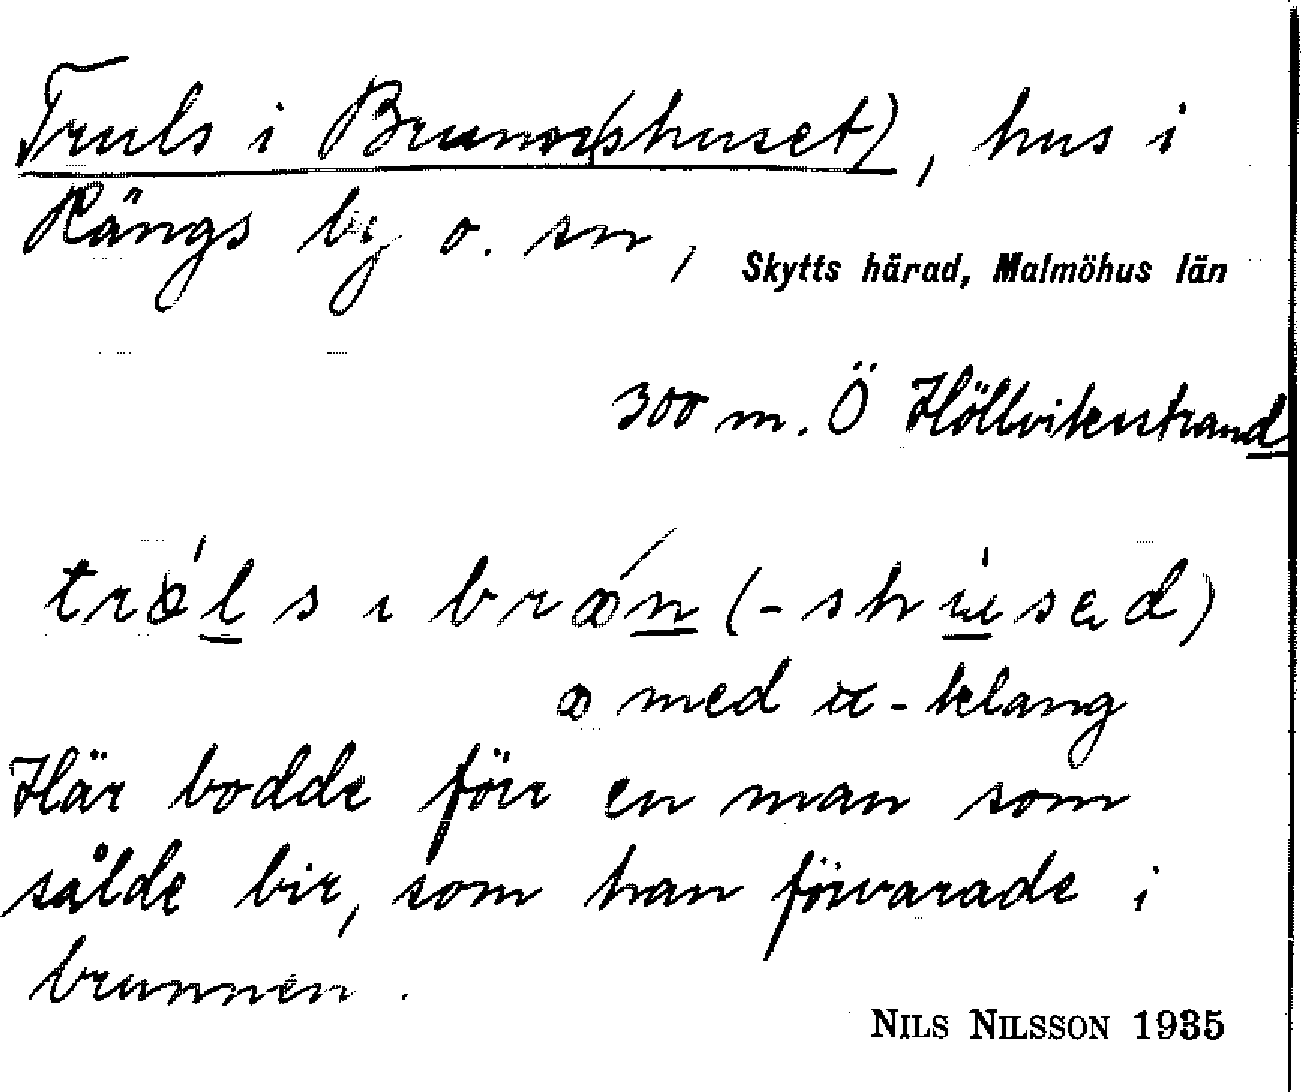 Truls i Brunn(shuset), hus i
Rängs by o. sn, Skytts härad, Malmöhus län
300 m. Ö Höllvikstrand
trøls ı brøn (-shused)
ø med æ-klang
Här bodde förr en man som
sålde bir, som han förvarade i
brunnen.
NILS NILSSON 1935